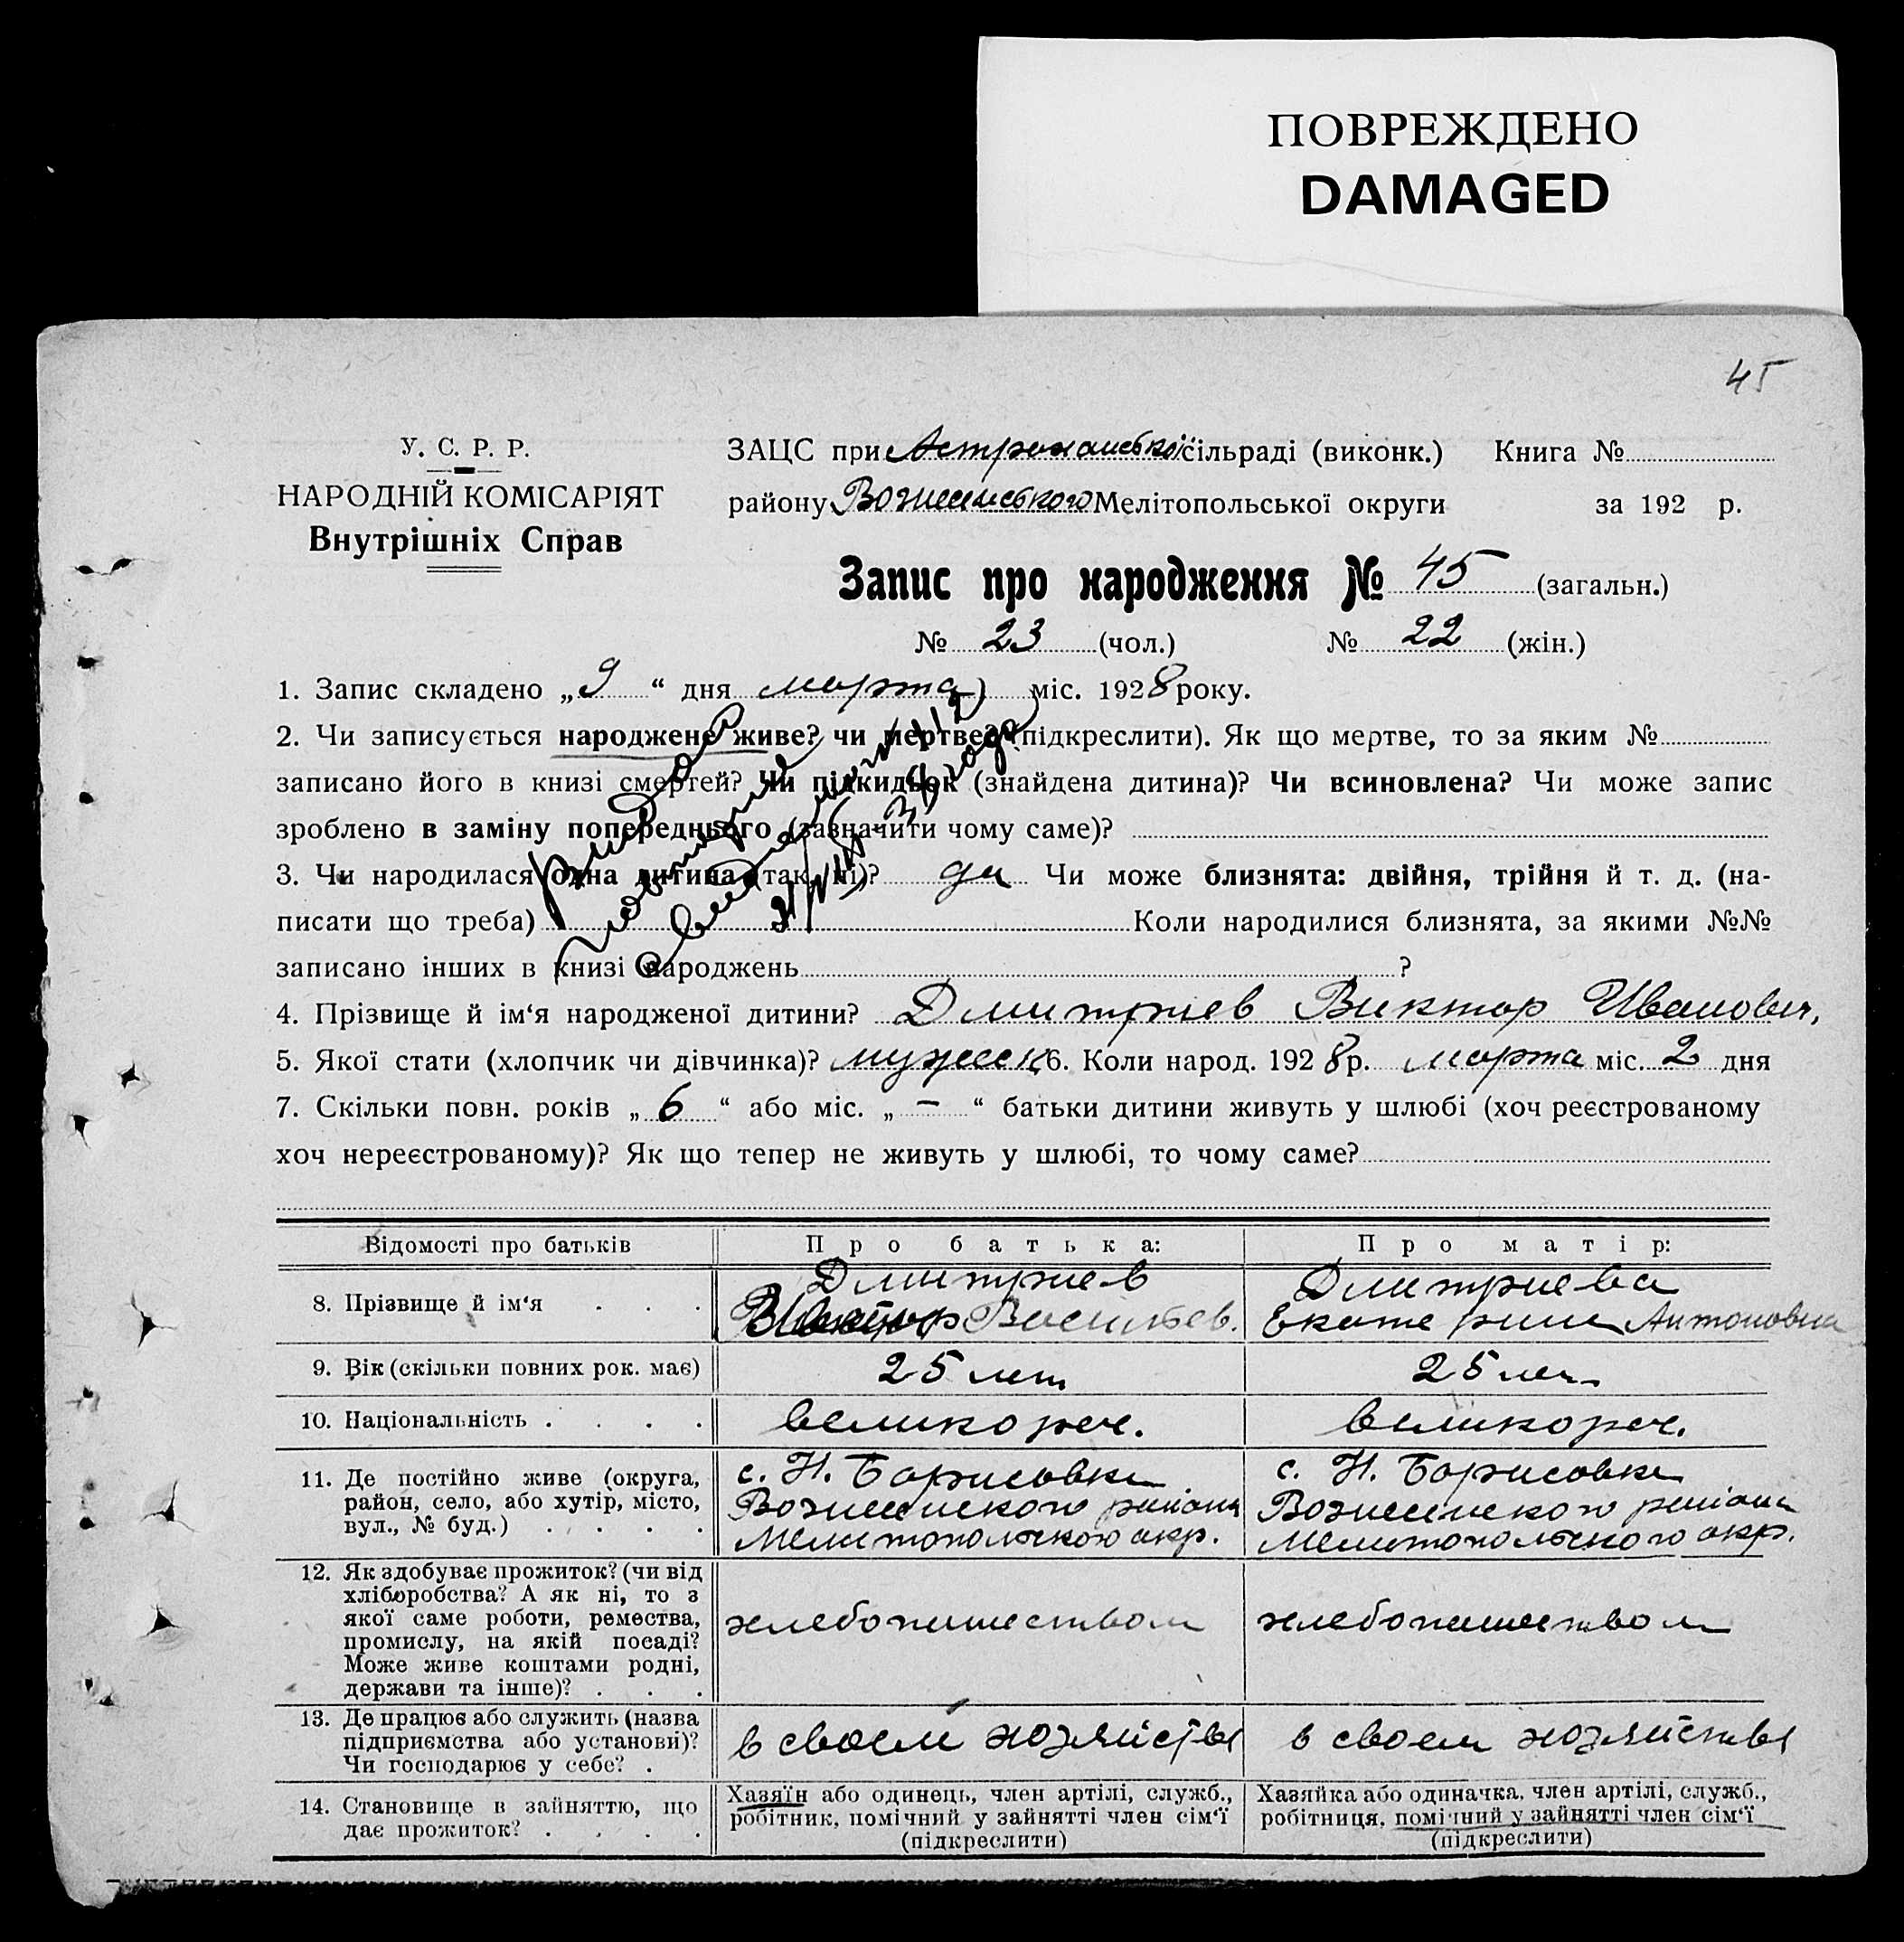 ПОВРЕЖДЕНО
DAMAGED
45
У. С. Р. Р.
НАРОДНІЙ КОМІСАРІЯТ
Внутрішніх Справ
ЗАЦС при Астраханській сільраді (виконк.) Книга №
району Вознесенського Мелітопольської округи за 192 р.
Запис про народження № 45 (загальн.)
№ 23 (чол.) № 22 (жін.)
1. Запис складено „9“ дня марта міс. 1928 року.
2. Чи записується народжене живе? чи мертве? (підкреслити). Як що мертве, то за яким №
записано його в книзі смертей? Чи підкидьок (знайдена дитина)? Чи всиновлена? Чи може запис
зроблено в заміну попереднього (зазначити чому саме)?
3. Чи народилася одна дитина (так, ні)? да Чи може близнята: двійня, трійня й т. д. (на-
писати що треба) Коли народилися близнята, за якими №№
записано інших в книзі народжень ?
Выдано
повторное
4. Прізвище й ім‘я народженої дитини? Дмитриев Виктор Иванович,
5. Якої стати (хлопчик чи дівчинка)? мужск 6. Коли народ. 1928 р. марта міс. 2 дня
7. Скільки повн. років „6“ або міс. „–“ батьки дитини живуть у шлюбі (хоч реєстрованому
хоч нереєстрованому)? Як що тепер не живуть у шлюбі, то чому саме?
Відомості про батьків Про батька: Про матір:
8. Прізвище й ім‘я . . . Дмитриев Васильев. Дмитриева Екатерина Антоновна
9. Вік (скільки повних рок. має) 25 лет 25 лет
10. Національність . . . . великорос. великорос.
11. Де постійно живе (округа,
район, село, або хутір, місто,
вул., № буд.) . . . .
с. Н. Борисовка
Вознесенского района
Мелитопольского окр.
с. Н. Борисовка
Вознесенского района
Мелитопольского окр.
12. Як здобуває прожиток? (чи від
хліборобства? А як ні, то з
якої саме роботи, ремества,
промислу, на якій посаді?
Може живе коштами родні,
держави та інше)? . . .
хлебопашеством
хлебопашеством
13. Де працює або служить (назва
підприємства або установи)?
Чи господарює у себе? .
в своем хозяйстве
в своем хозяйстве
14. Становище в зайняттю, що
дає прожиток? . . . .
Хазяїн або одинець, член артілі, служб.,
робітник, помічний у зайнятті член сім‘ї
(підкреслити)
Хазяйка або одиначка, член артілі, служб.,
робітниця, помічний у зайнятті член сім‘ї
(підкреслити)